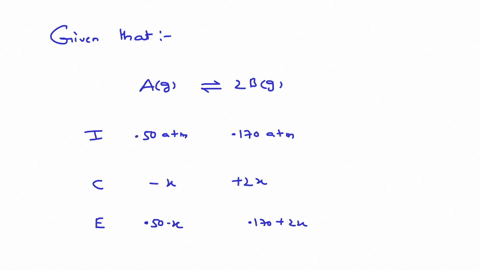 Given that :-
A(g) ⇌ 2B(g)
I .50 atm .170 atm
C -x +2x
E .50-x .170+2x